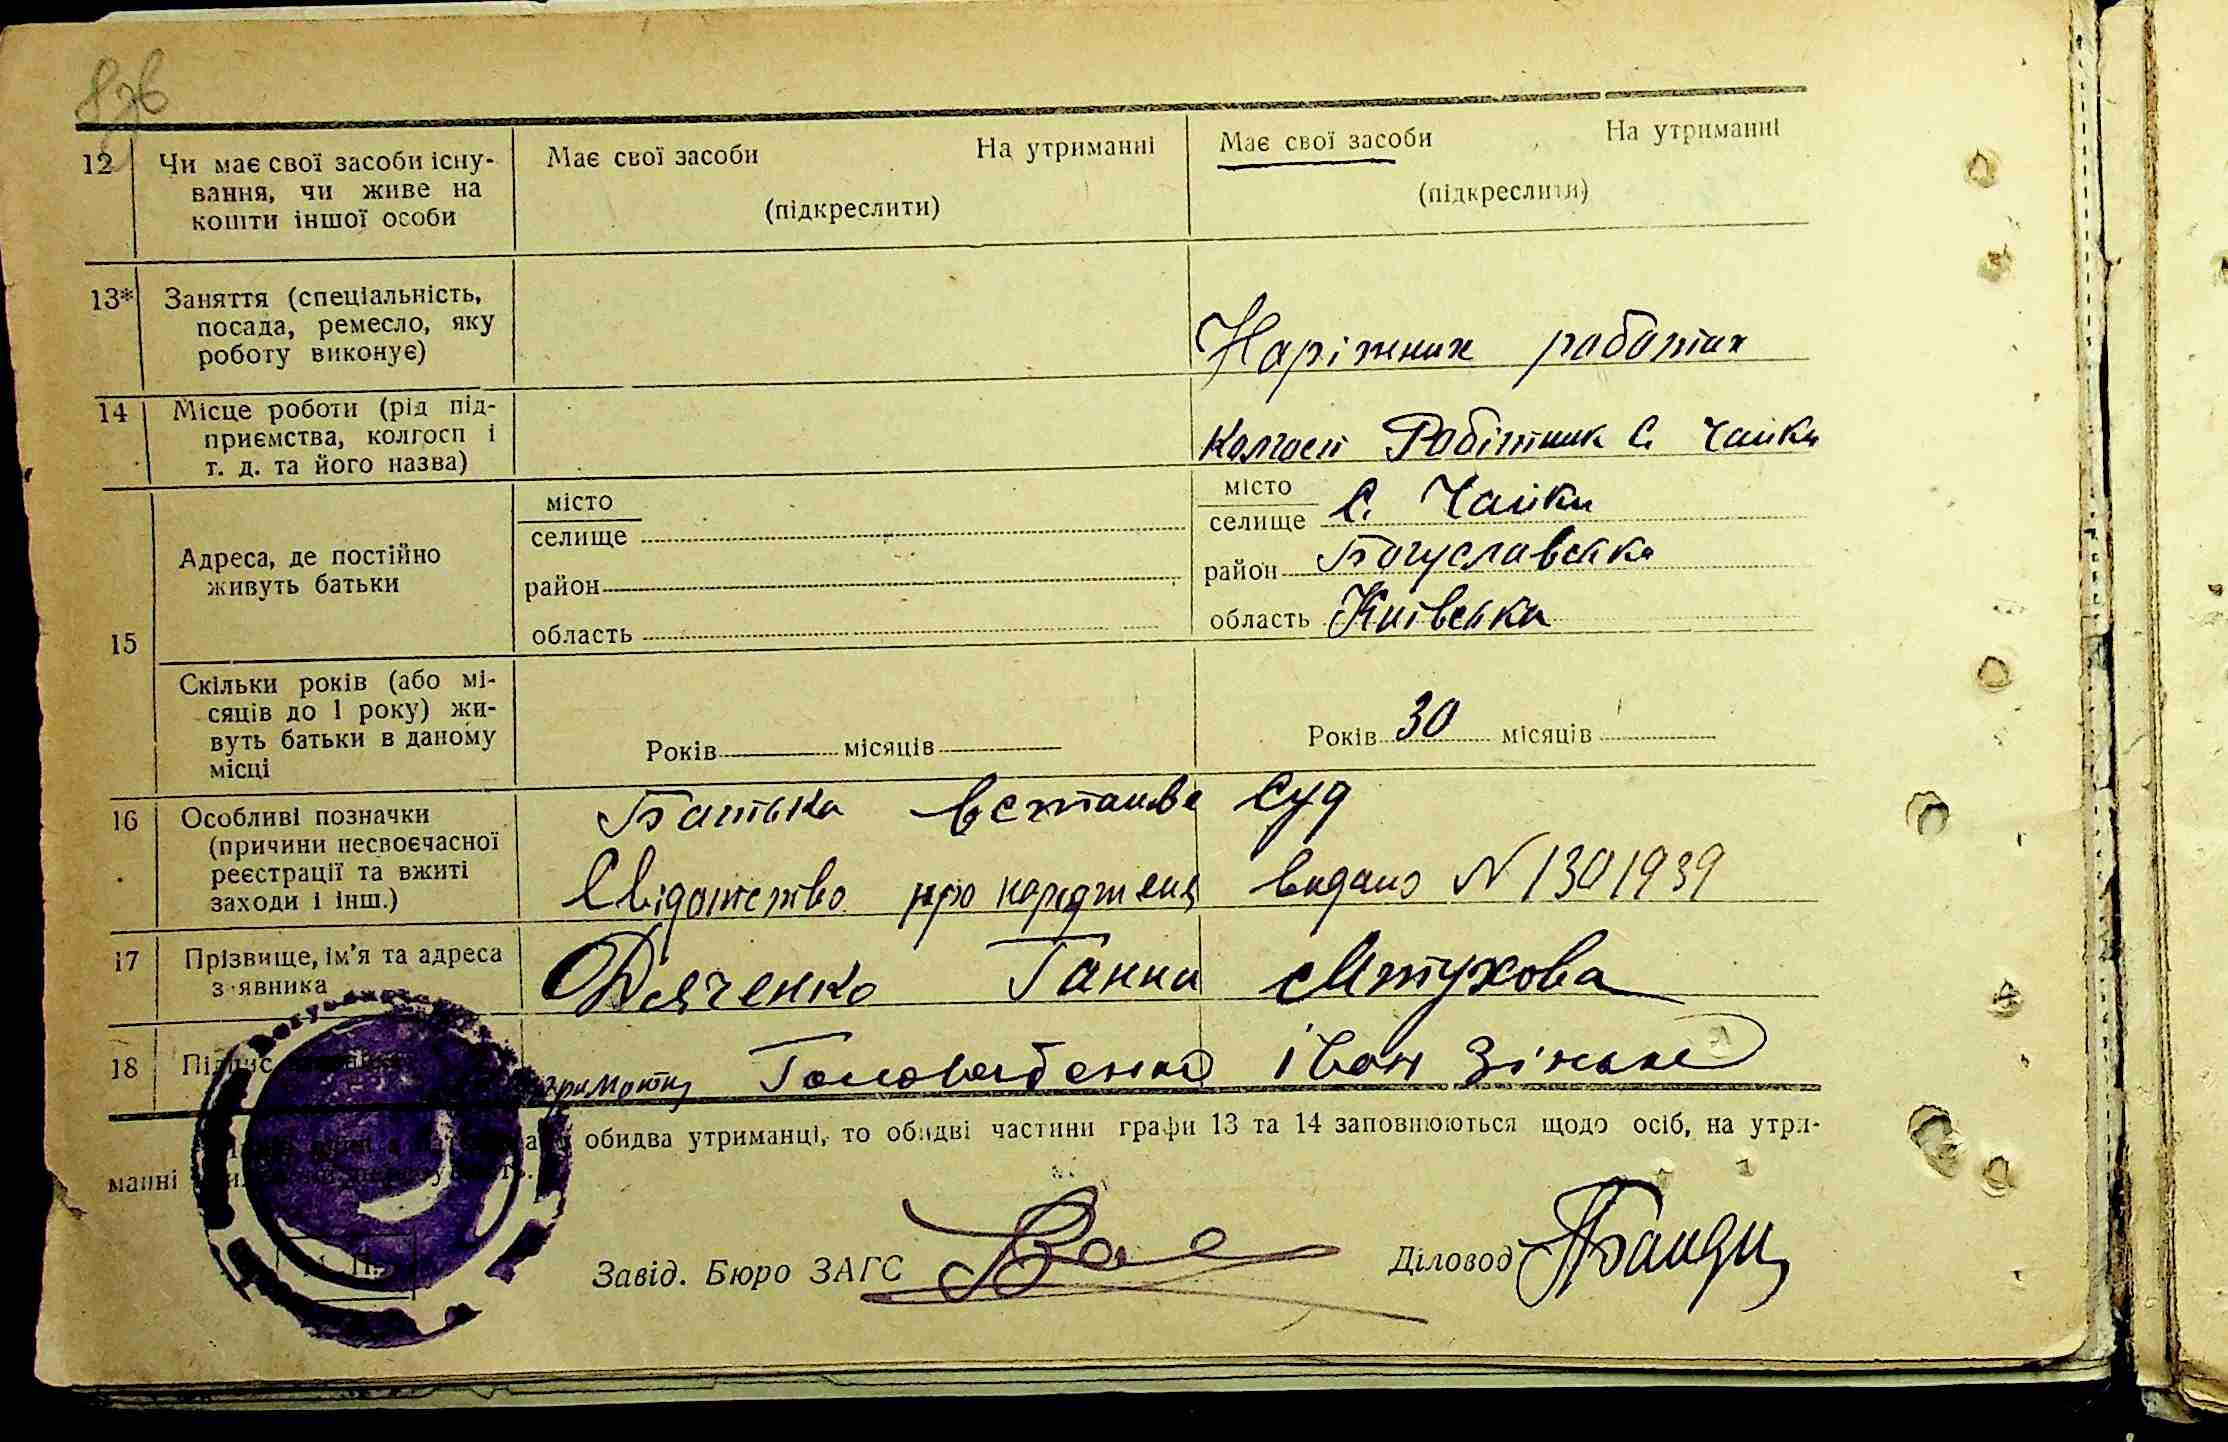 12 Чи має свої засоби існу-
вання, чи живе на
кошти іншої особи
Має свої засоби На утриманні
(підкреслити)
Має свої засоби На утриманні
(підкреслити)
13* Заняття (спеціальність,
посада, ремесло, яку
роботу виконує)
Наріжних роботах
14 Місце роботи (рід під-
приємства, колгосп і
т. д. та його назва)
Колгосп Робітник С. Чайки
15
Адреса, де постійно
живуть батьки
місто
селище
район
область
місто
селище С. Чайки
район Богуславська
область Київська
Скільки років (або мі-
сяців до 1 року) жи-
вуть батьки в даному
місці
Років місяців
Років 30 місяців
16 Особливі позначки
(причини несвоєчасної
реєстрації та вжиті
заходи і інш.)
Батька встанве суд
Свідотство про народженя видано N 1301939
17 Прізвище, ім'я та адреса
з'явника
Дяченко Ганна
18 Підпис
Іван
обидва утриманці, то обидві частини графи 13 та 14 заповнюються щодо осіб, на утри-
манні
Завід. Бюро ЗАГС
Діловод